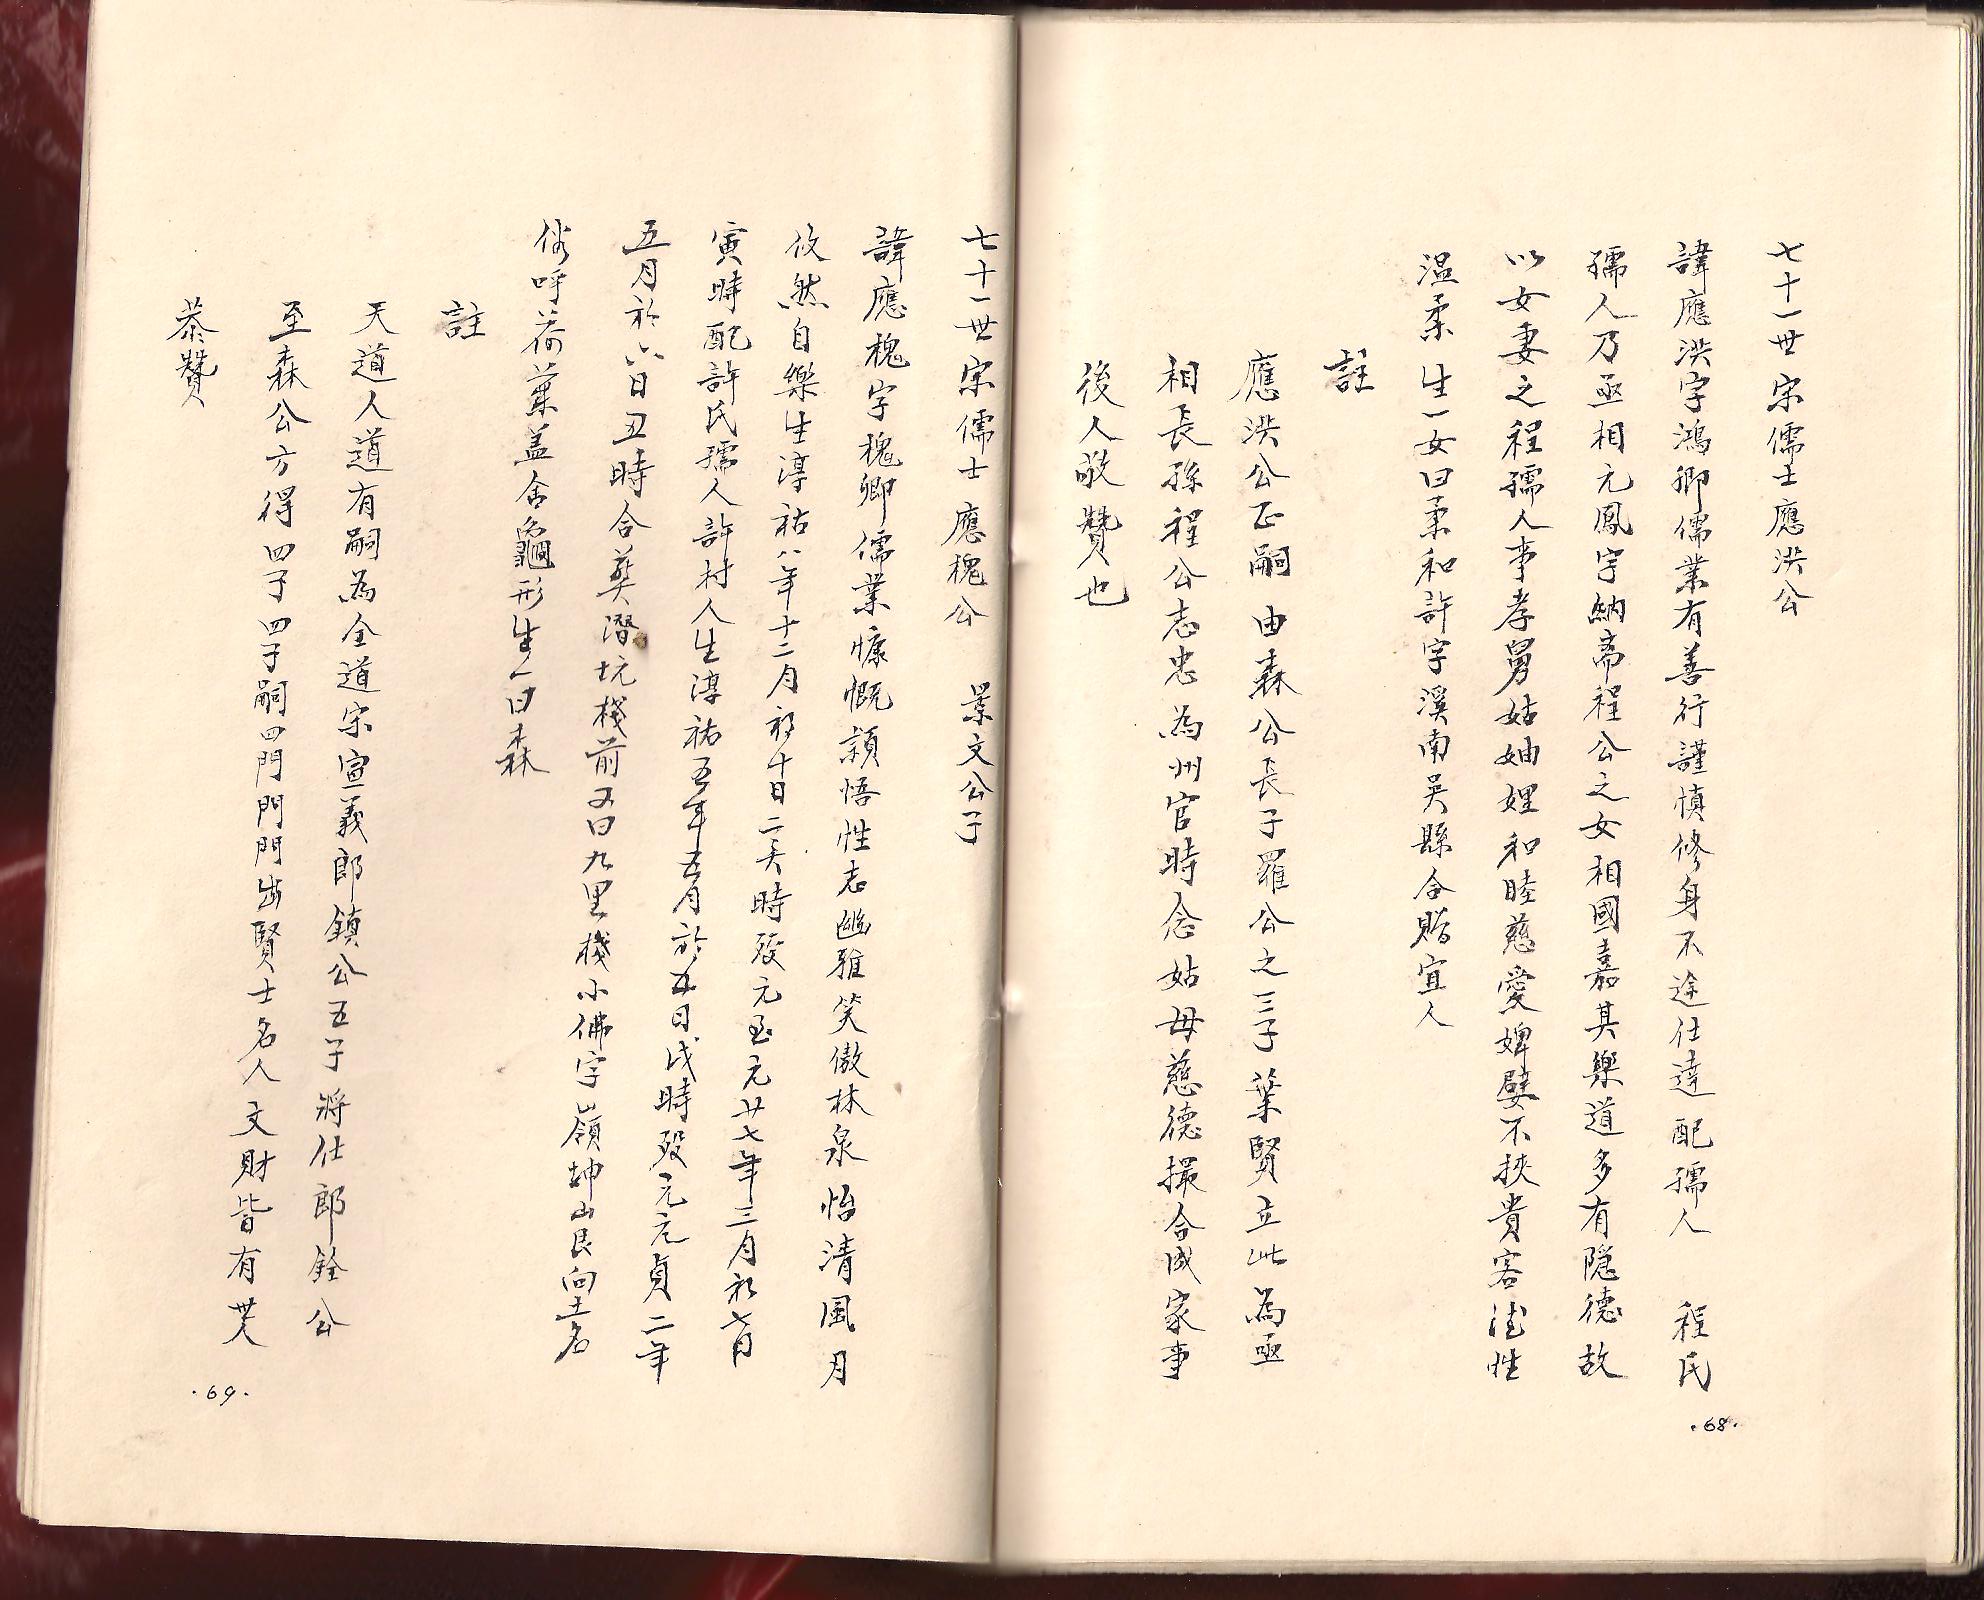 七十一世宋儒士應洪公
諱應洪字鴻卿儒業有善行謹慎修身不途仕達配孺人 程氏
孺人乃丞相元鳳字納斋程公之女相國嘉其樂道多有隐德故
以女妻之程孺人事孝舅姑妯娌和睦慈愛婢嬖不挾貴客德性
温柔生一女曰柔和許字溪南吳縣令貽宜人
註
應洪公正嗣由森公長子羅公之三子葉賢立此為丞
相長孫程公志忠為州官時念姑母慈德撮合成家事
後人敬贊也
·68·
七十一世宋儒士應槐公 景文公子
諱應槐字槐卿儒業慷慨穎悟性志幽雅笑傲林泉怡清風月
攸然自樂生淳祐八年十二月初十日二天時殁元至元廿七年三月初七日
寅時配許氏孺人許村人生淳祐五年五月初五日戌時殁元元貞二年
五月初六日丑時合葬潛坑棧前又曰九里棧小佛字嶺坤山艮向土名
俗呼荷葉盖金龜形生一曰森
註
天道人道有嗣為全道宋宣義郎鎮公五子將仕郎銓公
至森公方得四子四子嗣四門門門出賢士名人文財皆有
恭贊
·69·